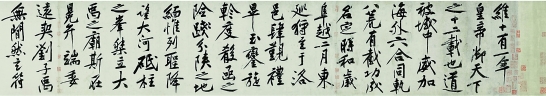 維十有一年
皇帝御天下
之十二載也道
被域中威加
海外六合同軌
八荒有截功成
名定時和歲
阜越二月東
巡狩至于洛
邑肆覲禮
畢玉鑾旋
軫度殽函之
險踐分陝之地
緬惟列聖降
望大河砥柱
之峯桀立大
禹之廟斯在
冕弁端委
遠契劉子禹
無間然玄符